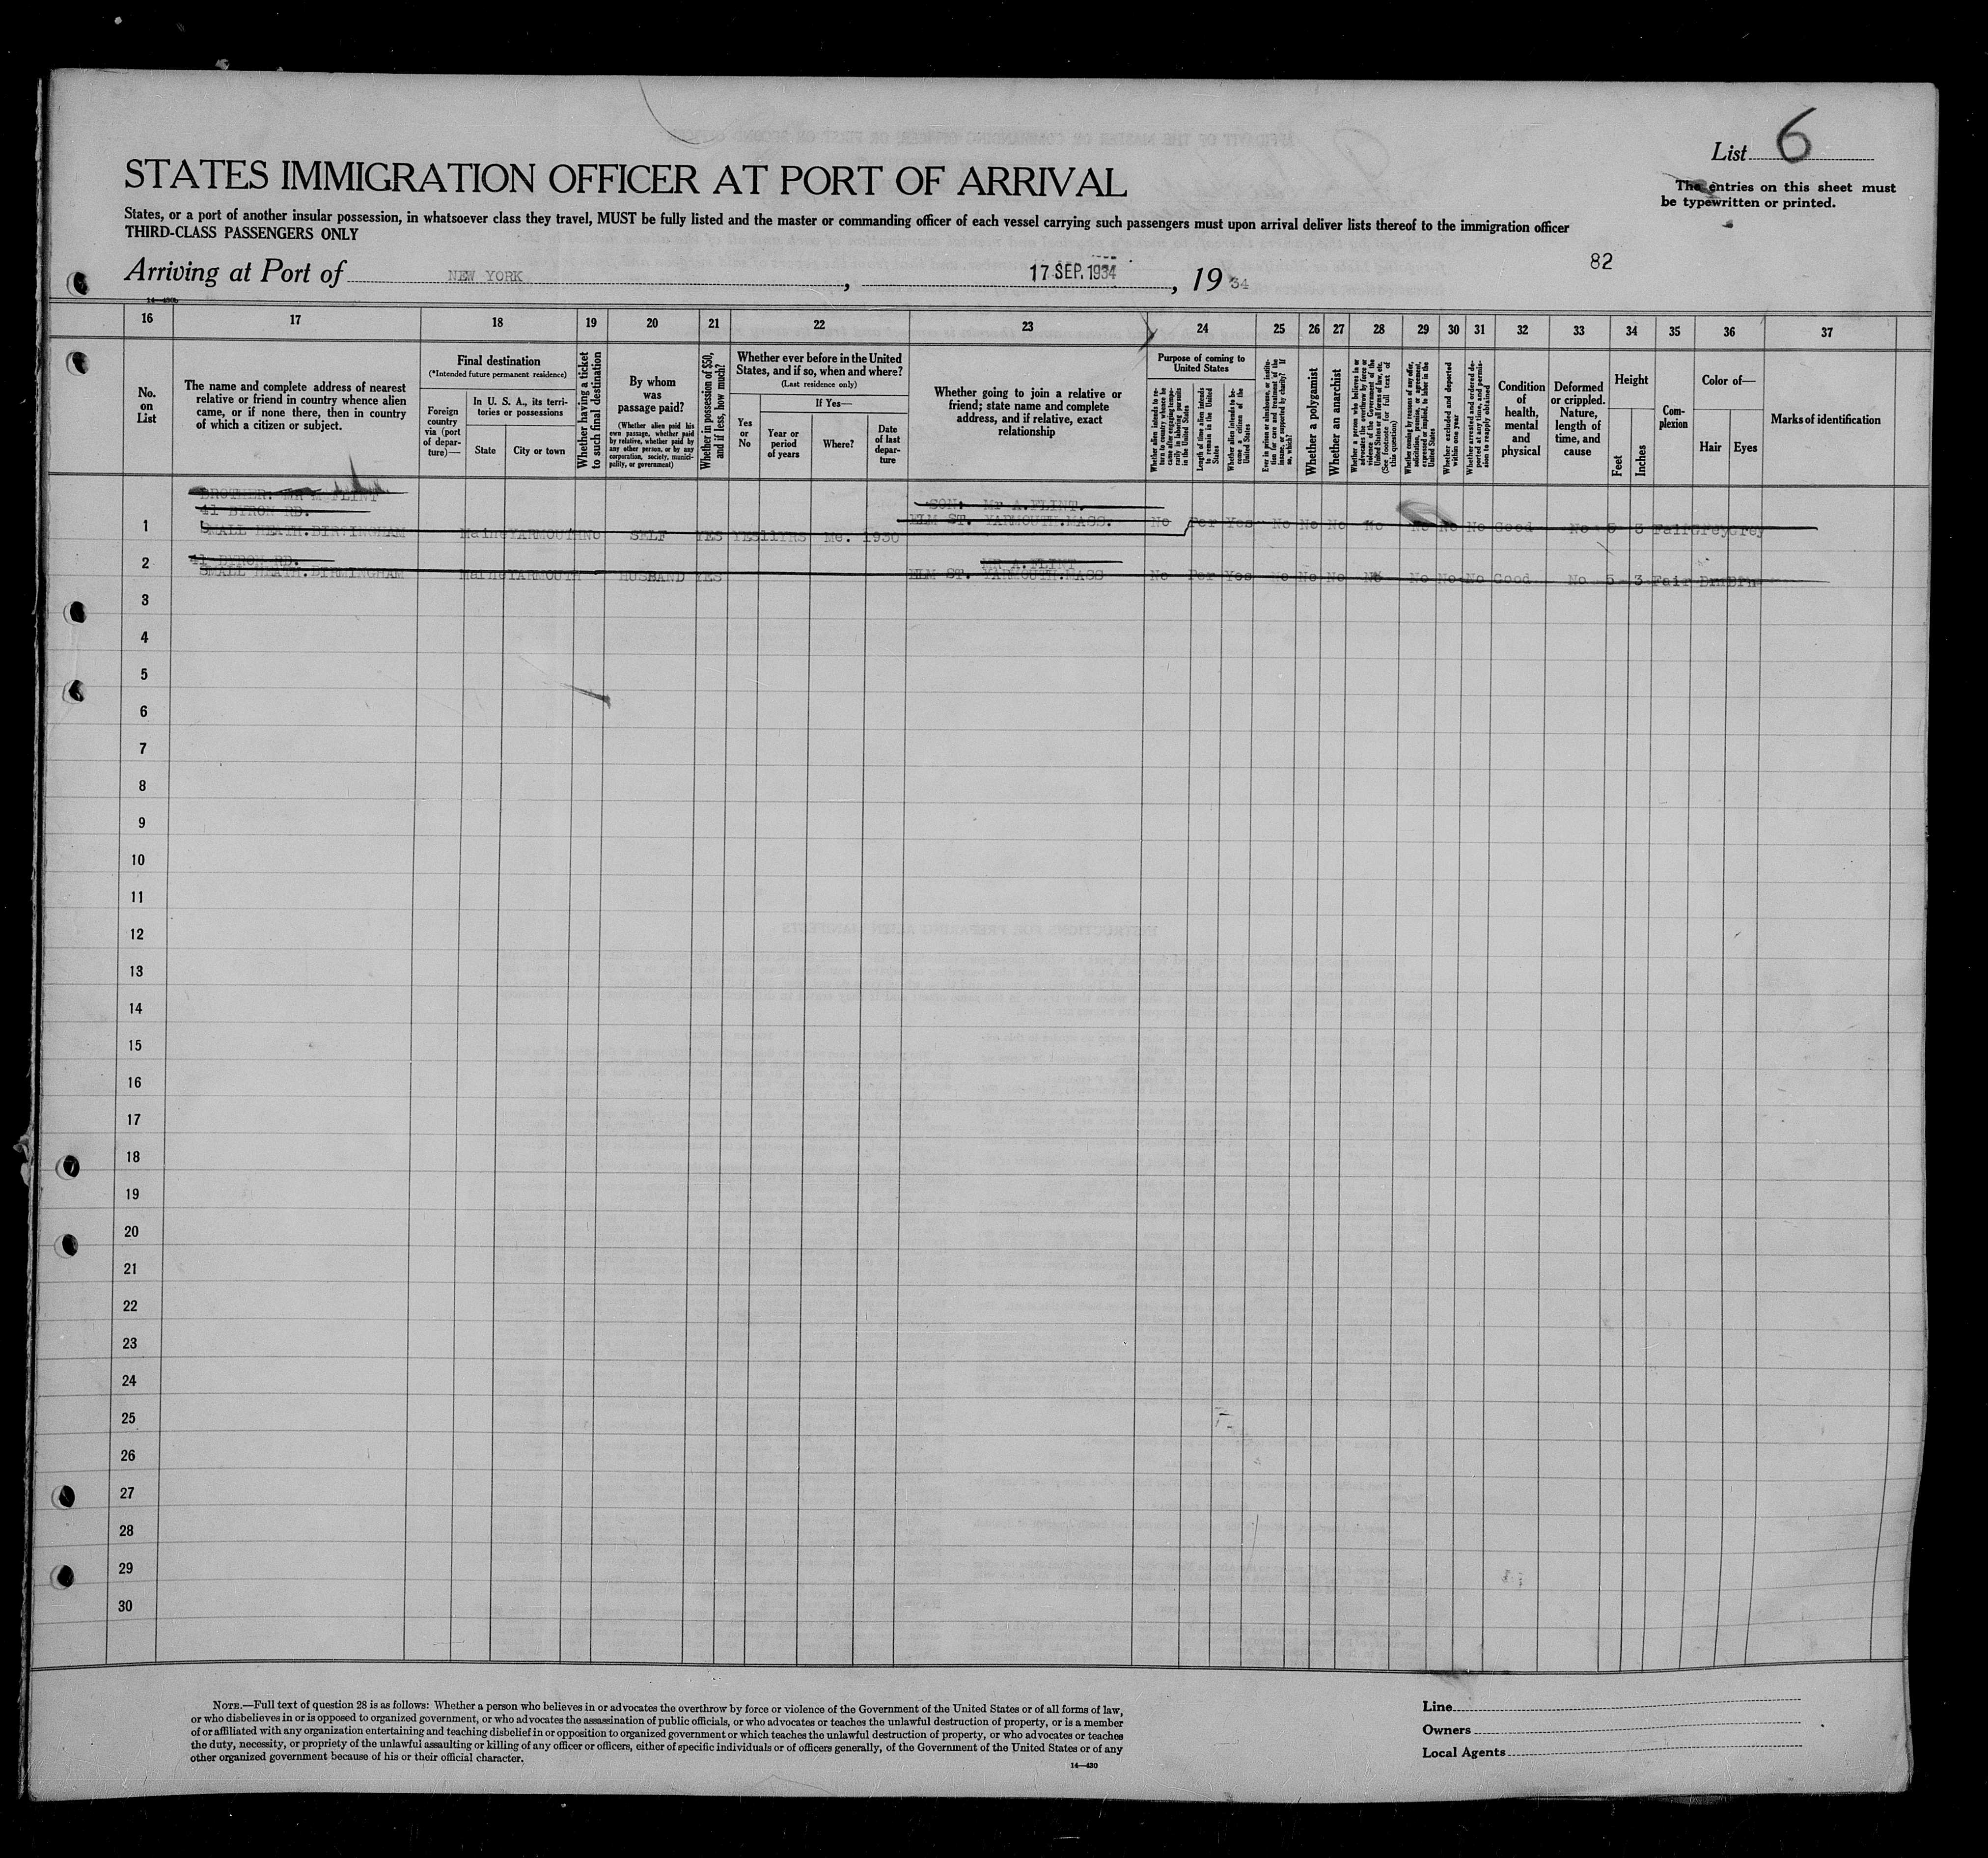 List 6
STATES IMMIGRATION OFFICER AT PORT OF ARRIVAL
The entries on this sheet must
be typewritten or printed.
States, or a port of another insular possession, in whatsoever class they travel, MUST be fully listed and the master or commanding officer of each vessel carrying such passengers must upon arrival deliver lists thereof to the immigration officer
THIRD-CLASS PASSENGERS ONLY
82
Arriving at Port of NEW YORK, 17 SEP. 1934, 1934
16 17 18 19 20 21 22 23 24 25 26 27 28 29 30 31 32 33 34 35 36 37
No.
on
List
The name and complete address of nearest
relative or friend in country whence alien
came, or if none there, then in country
of which a citizen or subject.
Final destination
(*Intended future permanent residence)
Foreign
country
via (port
of depar-
ture)—
In U. S. A., its terri-
tories or possessions
State
City or town
Whether having a ticket
to such final destination
By whom
was
passage paid?
(Whether alien paid his
own passage, whether paid
by relative, whether paid by
any other person, or by any
corporation, society, munici-
pality, or government)
Whether in possession of $50,
and if less, how much?
Whether ever before in the United
States, and if so, when and where?
(Last residence only)
Yes
or
No
If Yes—
Year or
period
of years
Where?
Date
of last
depar-
ture
Whether going to join a relative or
friend; state name and complete
address, and if relative, exact
relationship
Purpose of coming to
United States
Whether alien intends to re-
turn to country whence he
came after engaging tempo-
rarily in laboring pursuits
in the United States
Length of time alien intends
to remain in the United
States
Whether alien intends to be-
come a citizen of the
United States
Ever in prison or almshouse, or institu-
tion for care and treatment of the
insane, or supported by charity? If
so, which?
Whether a polygamist
Whether an anarchist
Whether a person who believes in or
advocates the overthrow by force or
violence of the Government of the
United States or all forms of law, etc.
(See footnote for full text of
this question)
Whether coming by reasons of any offer,
solicitation, promise, or agreement,
expressed or implied, to labor in the
United States
Whether excluded and deported
within one year
Whether arrested and ordered de-
ported at any time, and permis-
sion to reapply obtained
Condition
of
health,
mental
and
physical
Deformed
or crippled.
Nature,
length of
time, and
cause
Height
Feet
Inches
Com-
plexion
Color of—
Hair
Eyes
Marks of identification
BROTHER. MR M FLINT
41 BYRON RD.
SON: Mr A.FLINT.
ELM ST. YARMOUTH.MASS.
1 SMALL HEATH.BIRMINGHAM Maine YARMOUTH No SELF YES YES 11YRS Me. 1930 No Per Yes No No No No No No No Good No 5 3 Fair Grey Grey
41 BYRON RD.
MR A.FLINT
2 SMALL HEATH.BIRMINGHAM Maine YARMOUTH HUSBAND YES ELM ST. YARMOUTH.MASS No Per Yes No No No No No No No Good No 5 3 Fair Brn Brn
3
4
5
6
7
8
9
10
11
12
13
14
15
16
17
18
19
20
21
22
23
24
25
26
27
28
29
30
NOTE.—Full text of question 28 is as follows: Whether a person who believes in or advocates the overthrow by force or violence of the Government of the United States or of all forms of law,
or who disbelieves in or is opposed to organized government, or who advocates the assassination of public officials, or who advocates or teaches the unlawful destruction of property, or is a member
of or affiliated with any organization entertaining and teaching disbelief in or opposition to organized government or which teaches the unlawful destruction of property, or who advocates or teaches
the duty, necessity, or propriety of the unlawful assaulting or killing of any officer or officers, either of specific individuals or of officers generally, of the Government of the United States or of any
other organized government because of his or their official character.
14—430
Line
Owners
Local Agents